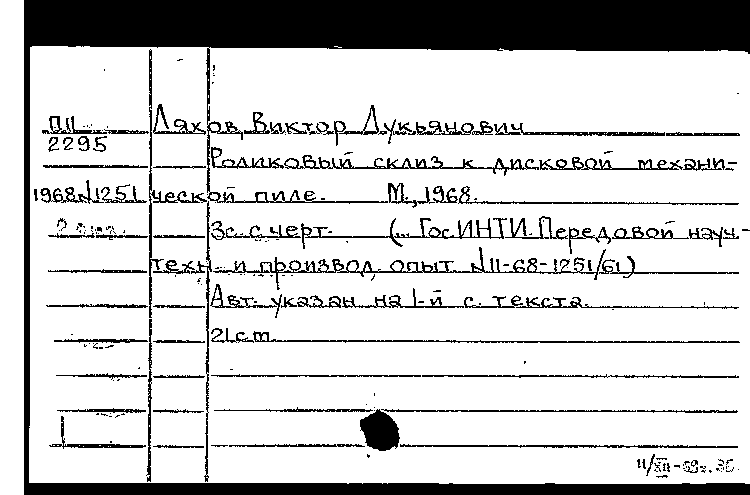 ПП
2295
Ляхов, Виктор Лукьянович
Роликовый склиз к дисковой механи-
1968 N1251 ческой пиле. М., 1968.
3с. с черт. (... Гос.ИНТИ. Передовой науч.-
техн. и производ. опыт. N11-68-1251/61)
Авт. указан на 1-й с. текста.
21 см.
11/XII-69г.